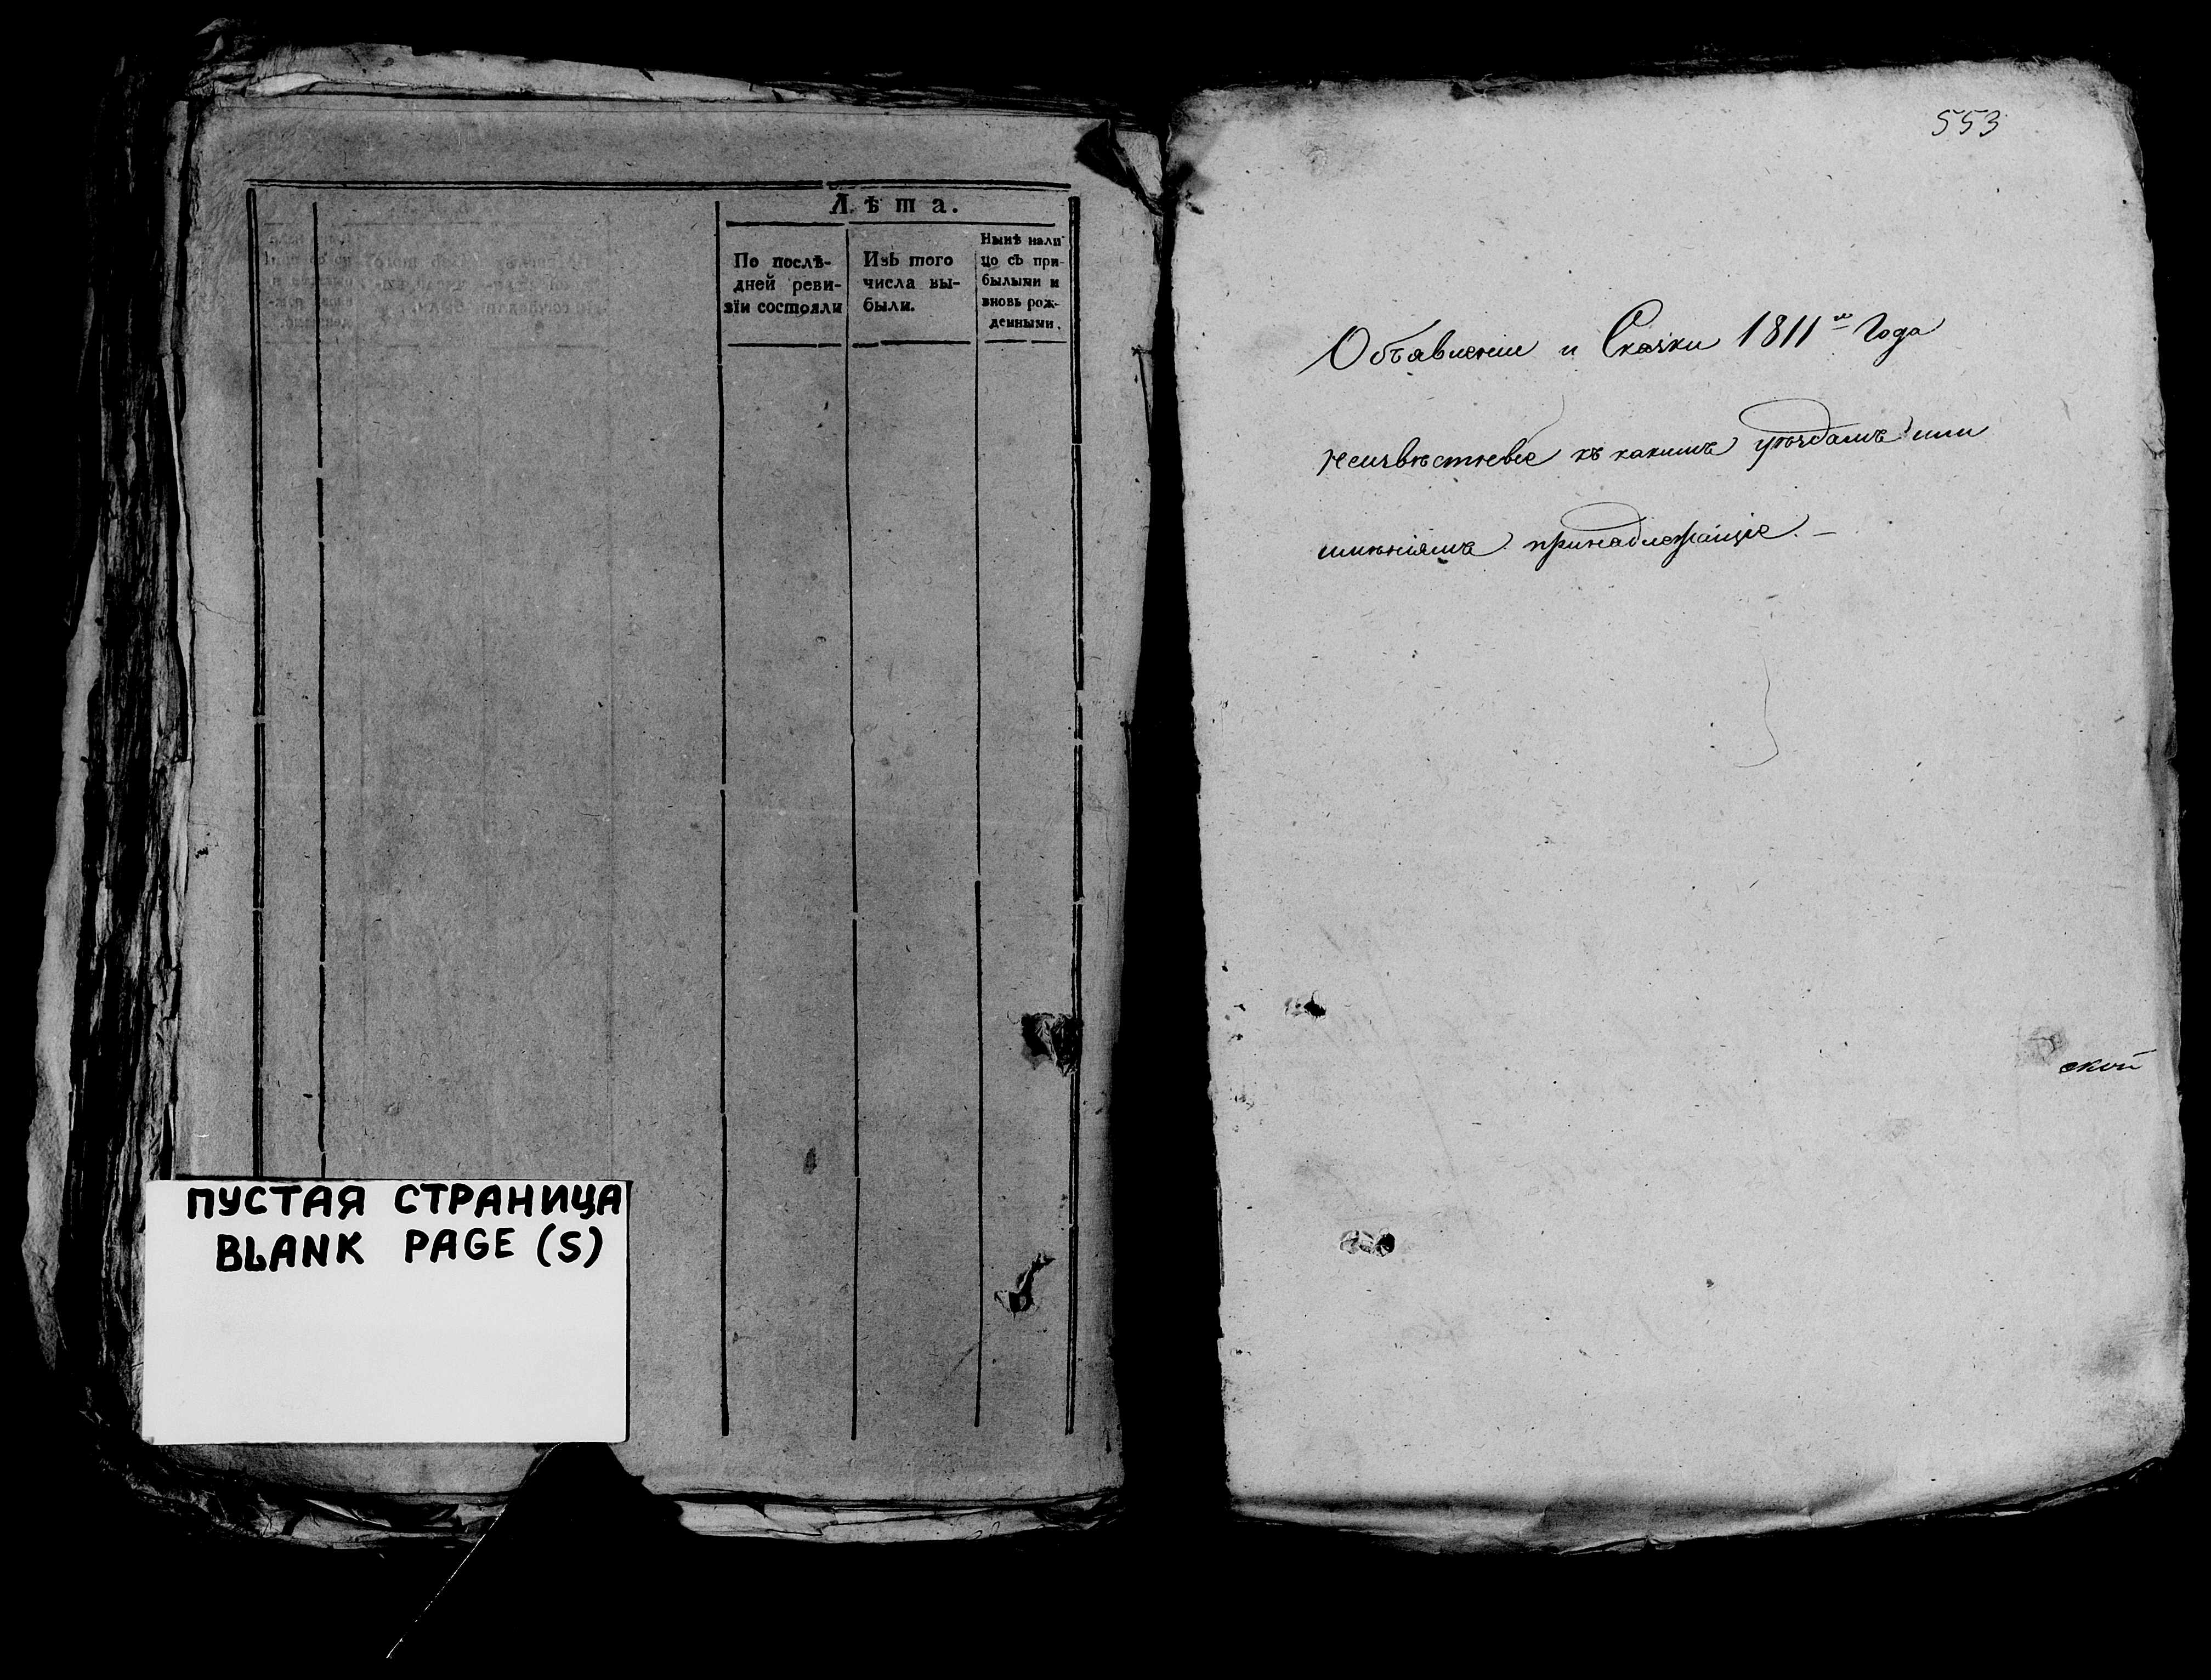 Лѣта.
По послѣ-
дней реви-
зїи состояли
Изъ того
числа вы-
были.
Нынѣ нали-
цо съ при-
былыми и
вновь рож-
денными.
ПУСТАЯ СТРАНИЦА
BLANK PAGE (S)
553
Объявленіи и Сказки 1811го Года
неизвѣстные къ какимъ уѣздамъ или
имѣніямъ принадлежащіе. —
ской